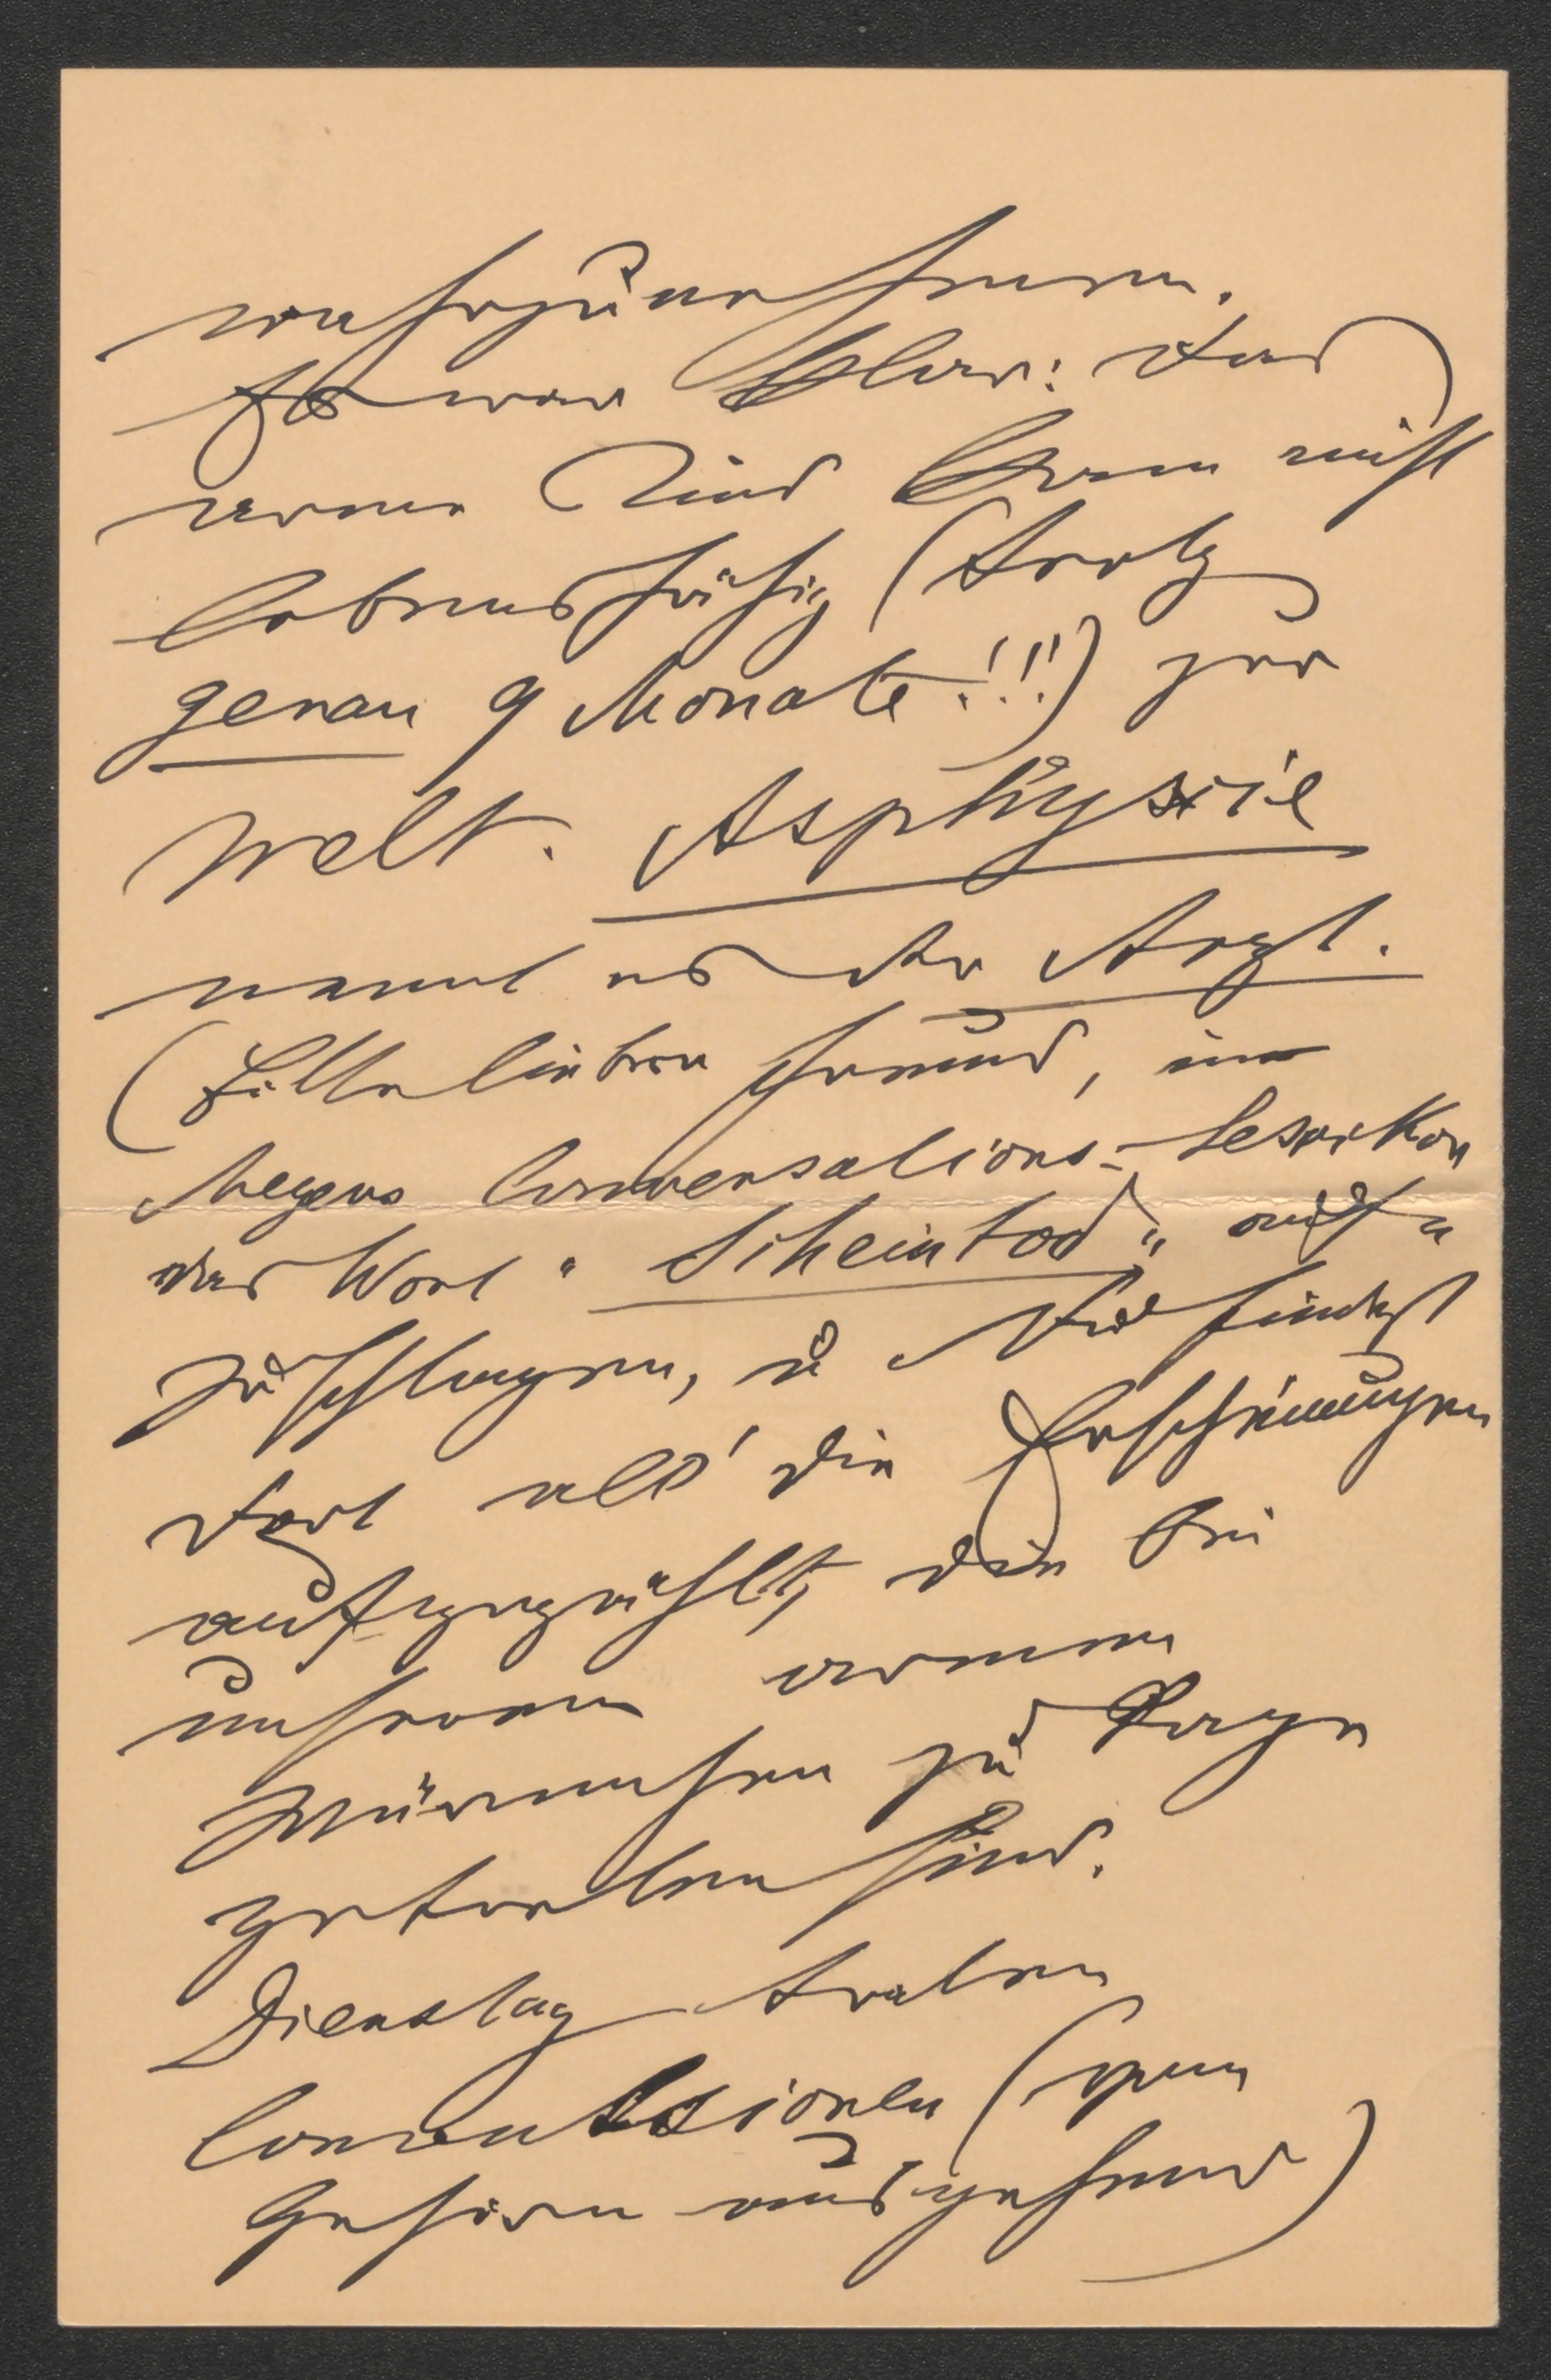 wahrzunehmen.
Es war klar: das
arme Kind kam nicht
lebensfähig (trotz
genau 9 Monate!!!) zur
Welt. Asphyxie
nannt es der Arzt.
(Bitte lieber Freund, im
Meyers Conversations-Lexikon
das Wort "Scheintod" auf
zuschlagen, u Du findest
dort all' die Erscheinungen
aufgezählt, die bei
unserem armen
Würmchen zu Tage
getreten sind.
Dienstag traten
Convulsionen (vom
Gehirn ausgehend)